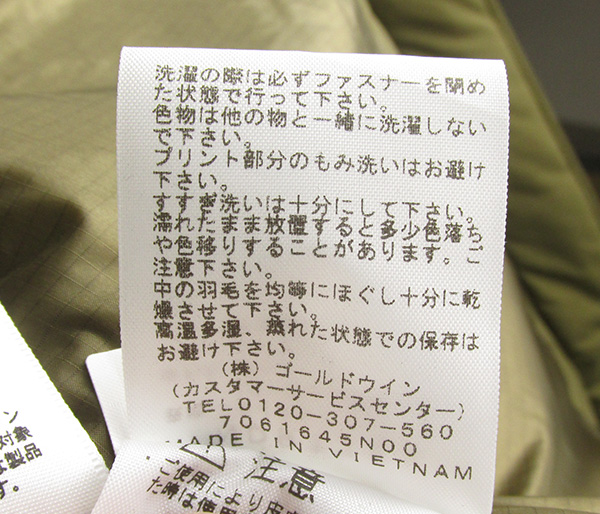 洗濯の際は必ずファスナーを閉め
た状態で行って下さい。
色物は他の物と一緒に洗濯しない
で下さい。
プリント部分のもみ洗いはお避け
下さい。
すすぎ洗いは十分にして下さい。
濡れたまま放置すると多少色落ち
や色移りすることがあります。ご
注意下さい。
中の羽毛を均等にほぐし十分に乾
燥させて下さい。
高温多湿、蒸れた状態での保存は
お避け下さい。
(株) ゴールドウイン
(カスタマーサービスセンター)
TEL0120-307-560
7061645N00
MADE IN VIETNAM
注意
・ご使用により
た時は使用
ン
対象
製品
す。